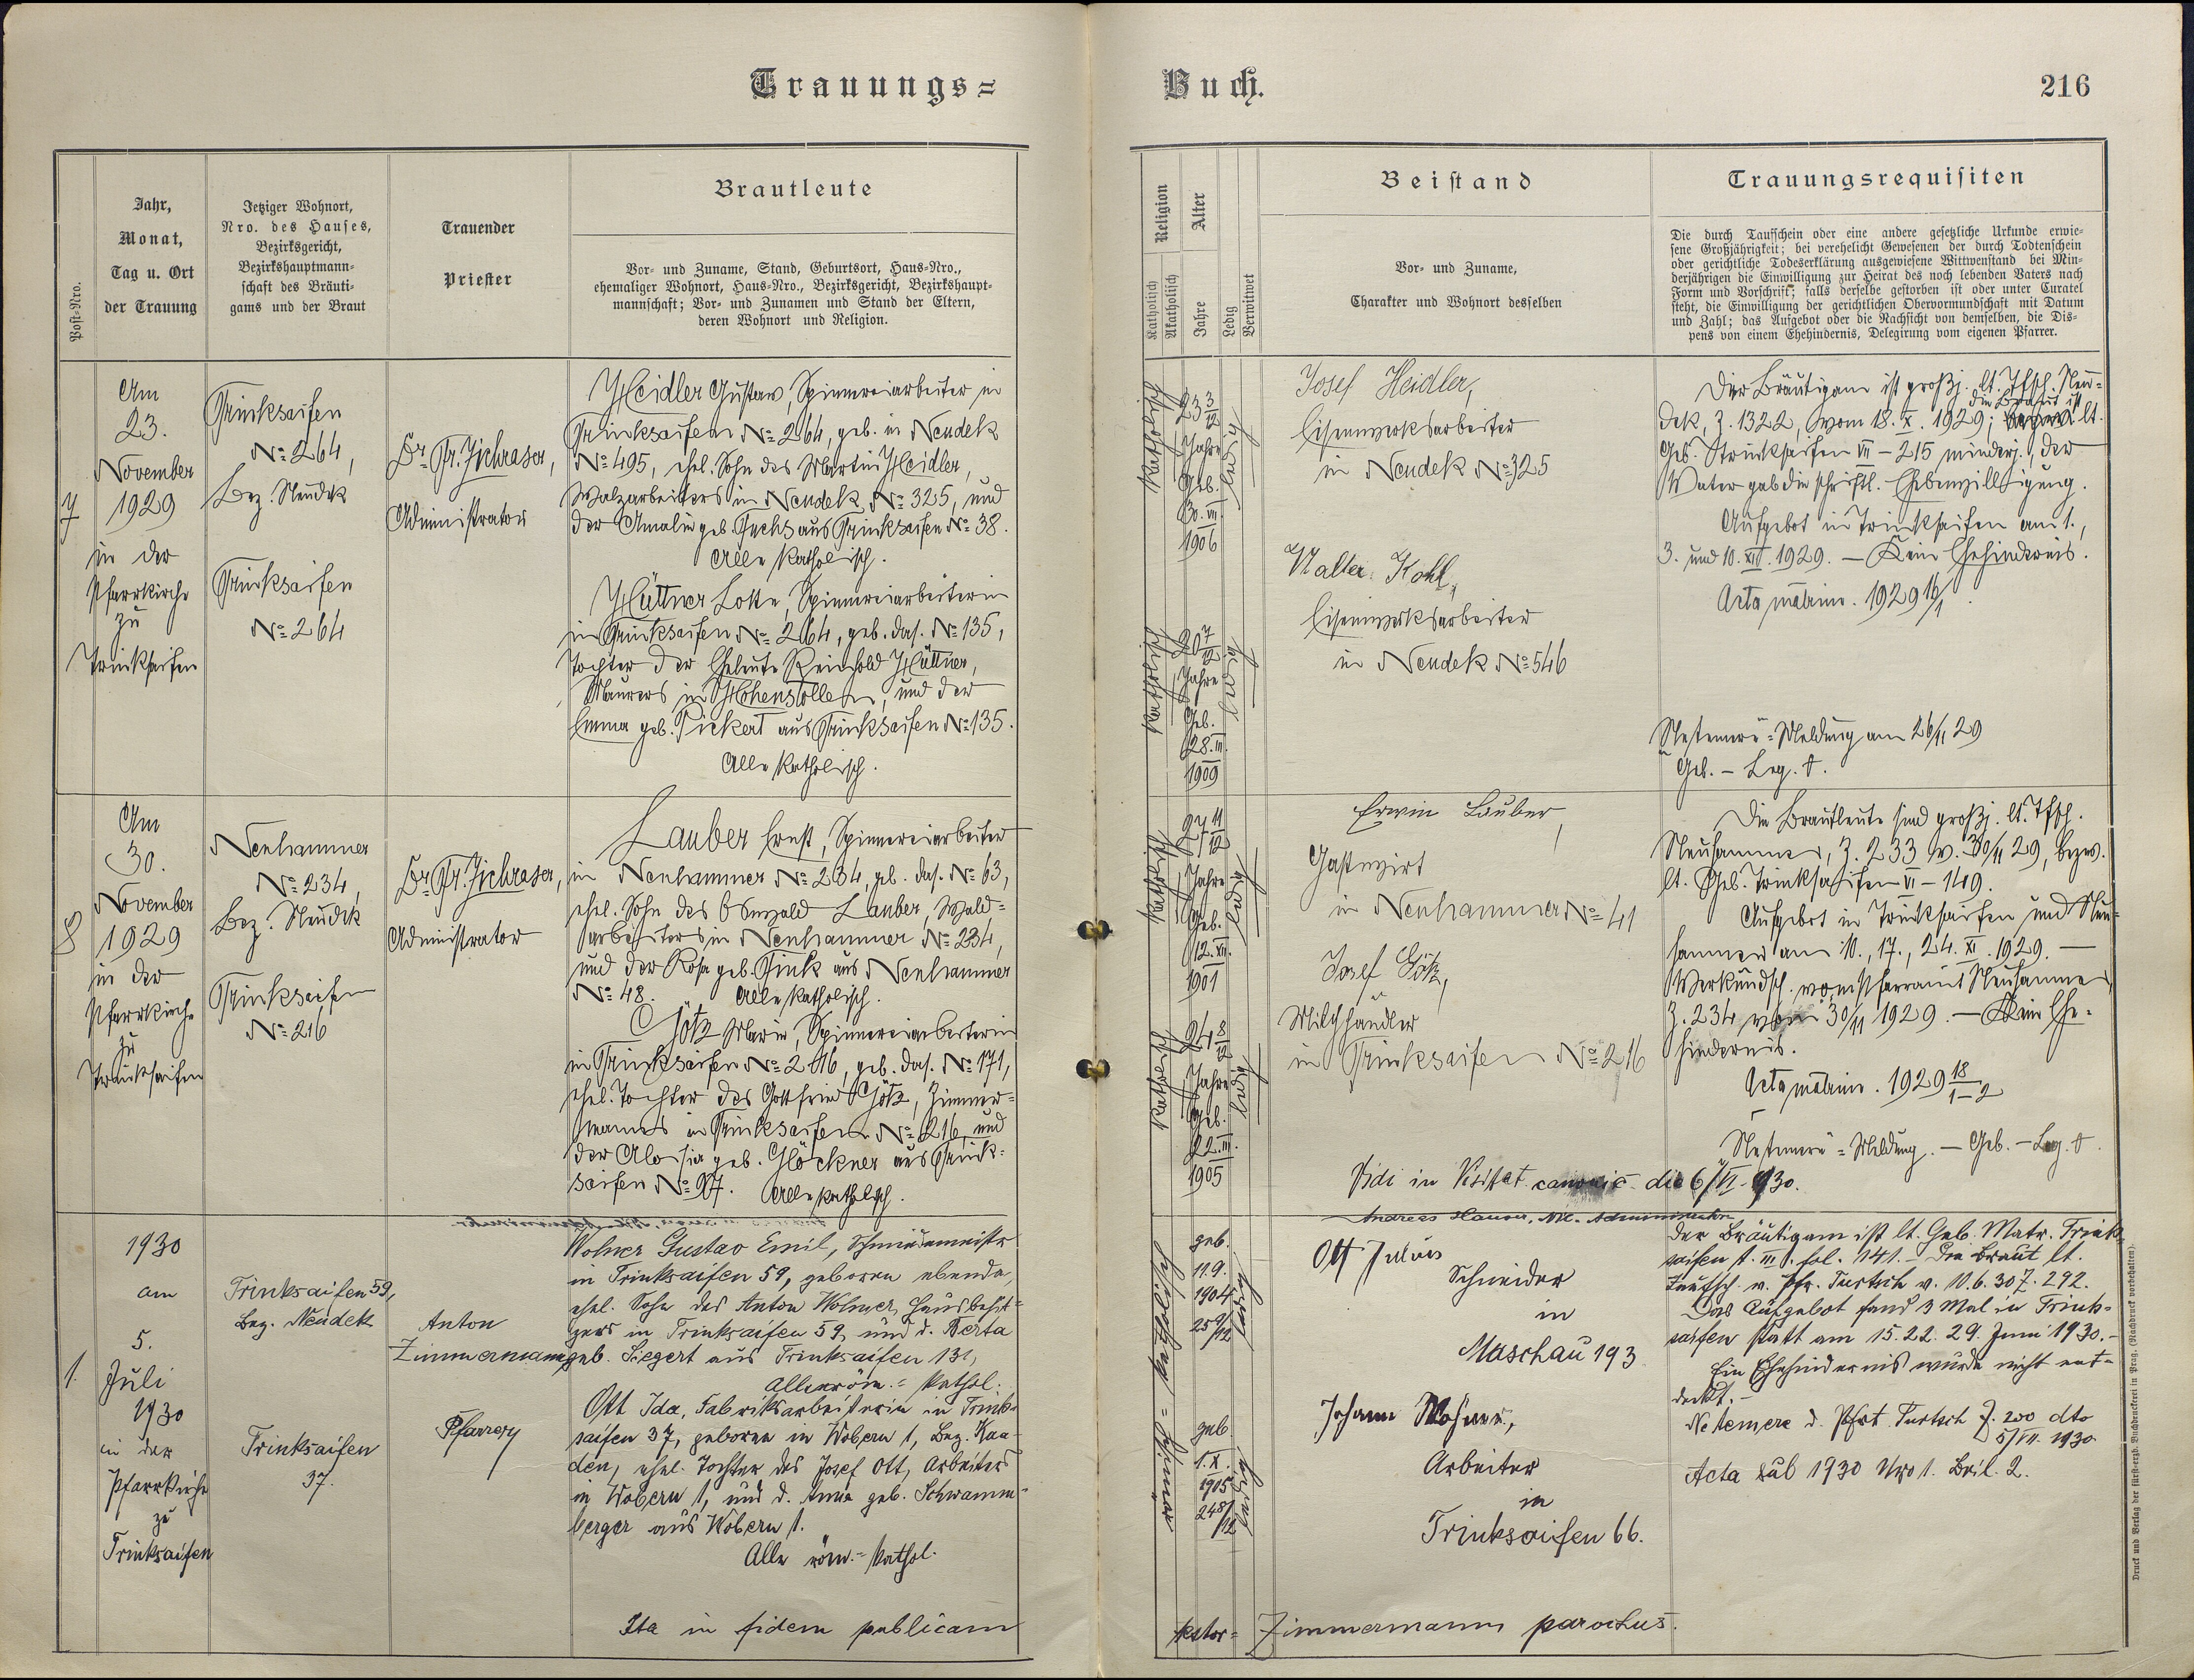 Trauungs=
Buch.
216
Post-Nro.
Jahr,
Monat,
Tag u. Ort
der Trauung
Jetziger Wohnort,
Nro. des Hauses,
Bezirksgericht,
Bezirkshauptmann=
schaft des Bräuti=
gams und der Braut
Trauender
Priester
Brautleute
Vor- und Zuname, Stand, Geburtsort, Haus-Nro.,
ehemaliger Wohnort, Haus-Nro., Bezirksgericht, Bezirkshaupt=
mannschaft; Vor- und Zunamen und Stand der Eltern,
deren Wohnort und Religion.
Religion
Katholisch
Akatholisch
Alter
Jahre
Ledig
Verwitwet
Beistand
Vor- und Zuname,
Charakter und Wohnort desselben
Trauungsrequisiten
Die durch Taufschein oder eine andere gesetzliche Urkunde erwie=
sene Großjährigkeit; bei verehelicht Gewesenen der durch Todtenschein
oder gerichtliche Todeserklärung ausgewiesene Wittwenstand bei Min=
derjährigen die Einwilligung zur Heirat des noch lebenden Vaters nach
Form und Vorschrift; falls derselbe gestorben ist oder unter Curatel
steht, die Einwilligung der gerichtlichen Obervormundschaft mit Datum
und Zahl; das Aufgebot oder die Nachsicht von demselben, die Dis=
pens von einem Ehehindernis, Delegirung vom eigenen Pfarrer.
7
Am
23.
November
1929
in der
Pfarrkirche
zu
Trinksaifen
Trinksaifen
No 264,
Bez. Neudek
Trinksaifen
No 264
Administrator
Heidler Gustav, Spinnereiarbeiter in
Trinksaifen No 264, geb. in Neudek
No 495, ehel. Sohn des Martin Heidler,
Walzarbeiters in Neudek No 325, und
der Amalie geb. Fuchs aus Trinksaifen No 38.
Alle katholisch.
Hüttner Lotte, Spinnereiarbeiterin
in Trinksaifen No 264, geb. das. No 135,
Tochter der Eheleute Reinhold Hüttner,
Maurers in Hohenstollen, und der
Emma geb. Pickert aus Trinksaifen No 135.
Alle katholisch.
katholisch
23 3/12
Jahre
Geb.
30. VII.
1906
ledig
katholisch
20 7/12
Jahre
Geb.
28. III.
1909
ledig
Josef Heidler,
Eisenwerksarbeiter
in Neudek No 325
Walter Kohl,
Eisenwerksarbeiter
in Neudek No 546
Der Bräutigam ist großj. lt. Tfsch. Neu=
dek, Z. 1322, vom 18. X. 1929; die Braut ist lt.
Geb. Trinksaifen VII - 215 minderj., der
Vater gab die schriftl. Ehebewilligung.
Aufgebot in Trinksaifen am 1.,
3. und 10. XII. 1929. — Kein Ehehindernis.
Acta matrim. 1929 16/1
Netemere=Meldung am 26/11 29
Geb. - Leg. †.
8
Am
30.
November
1929
in der
Pfarrkirche
zu
Trinksaifen
Neuhammer
No 234,
Bez. Neudek
Trinksaifen
No 216
Administrator
Lauber Ernst, Spinnereiarbeiter
in Neuhammer No 234, geb. das. No 63,
ehel. Sohn des Oswald Lauber, Wald=
arbeiters in Neuhammer No 234,
und der Rosa geb. Fink aus Neuhammer
No 48. Alle katholisch.
Götz Marie, Spinnereiarbeiterin
in Trinksaifen No 216, geb. das. No 171,
ehel. Tochter des Gottfried Götz, Zimmer=
manns in Trinksaifen No 216, und
der Aloisia geb. Glöckner aus Trink=
saifen No 97. Alle katholisch.
katholisch
27 11/12
Jahre
Geb.
12. XII.
1901
ledig
katholisch
24 8/12
Jahre
Geb.
22. III.
1905
ledig
Erwin Lauber,
Gastwirt
in Neuhammer No 41
Josef Götz,
Milchhändler
in Trinksaifen No 216
Die Brautleute sind großj. lt. Tfsch.
Neuhammer, Z. 233 v. 30/11 29, bezw.
lt. Geb. Trinksaifen VI - 149.
Aufgebot in Trinksaifen und Neu=
hammer am 10., 17., 24. XI. 1929. —
Verkündsch. vom Pfarramt Neuhammer,
Z. 234 vom 30/11 1929. — Kein Ehe=
hindernis.
Acta matrim. 1929 18/1-2
Netemere=Meldung. — Geb. - Leg. †.
Vidi in Visitat. canonic. die 6/VI. 930.
Andreas Hauser, Administrator
1
1930
am
5.
Juli
1930
in der
Pfarrkirche
zu
Trinksaifen
Trinksaifen 59,
Bez. Neudek
Trinksaifen
37.
Anton
Zimmermann,
Pfarrer
Wohner Gustav Emil, Schmiedemeister
in Trinksaifen 59, geboren ebenda,
ehel. Sohn des Anton Wohner, Hausbesit=
zers in Trinksaifen 59, und d. Berta
geb. Siegert aus Trinksaifen 131,
Alle röm.=kathol.
Ott Ida, Fabriksarbeiterin in Trink=
saifen 37, geboren in Wobern 1, Bez. Kaa=
den, ehel. Tochter des Josef Ott, Arbeiters
in Wobern 1, und d. Anna geb. Schwamm=
berger aus Wobern 1.
Alle röm.=kathol.
geb.
11.9.
1904
25 9/12
ledig
geb.
1. X.
1905
24 8/12
ledig
Ott Julius
Schneider
in
Maschau 193
Johann Wohner,
Arbeiter
in
Trinksaifen 66.
Der Bräutigam ist lt. Geb. Matr. Trink=
saifen t. III. fol. 141. - Die Braut lt.
Taufsch. v. Pfr. Turtsch v. 10.6.30 Z. 292.
Das Aufgebot fand 3 Mal in Trink=
saifen statt am 15. 22. 29. Juni 1930. -
Ein Ehehindernis wurde nicht ent=
deckt. -
Netemere d. Pfrt. Turtsch Z. 200 dto
5/VII. 1930.
Acta sub 1930 Nro 1. Beil. 2.
Ita in fidem publicam
testor= Zimmermann parochus.
Druck und Verlag der fürst-erzb. Buchdruckerei in Prag. (Nachdruck vorbehalten)